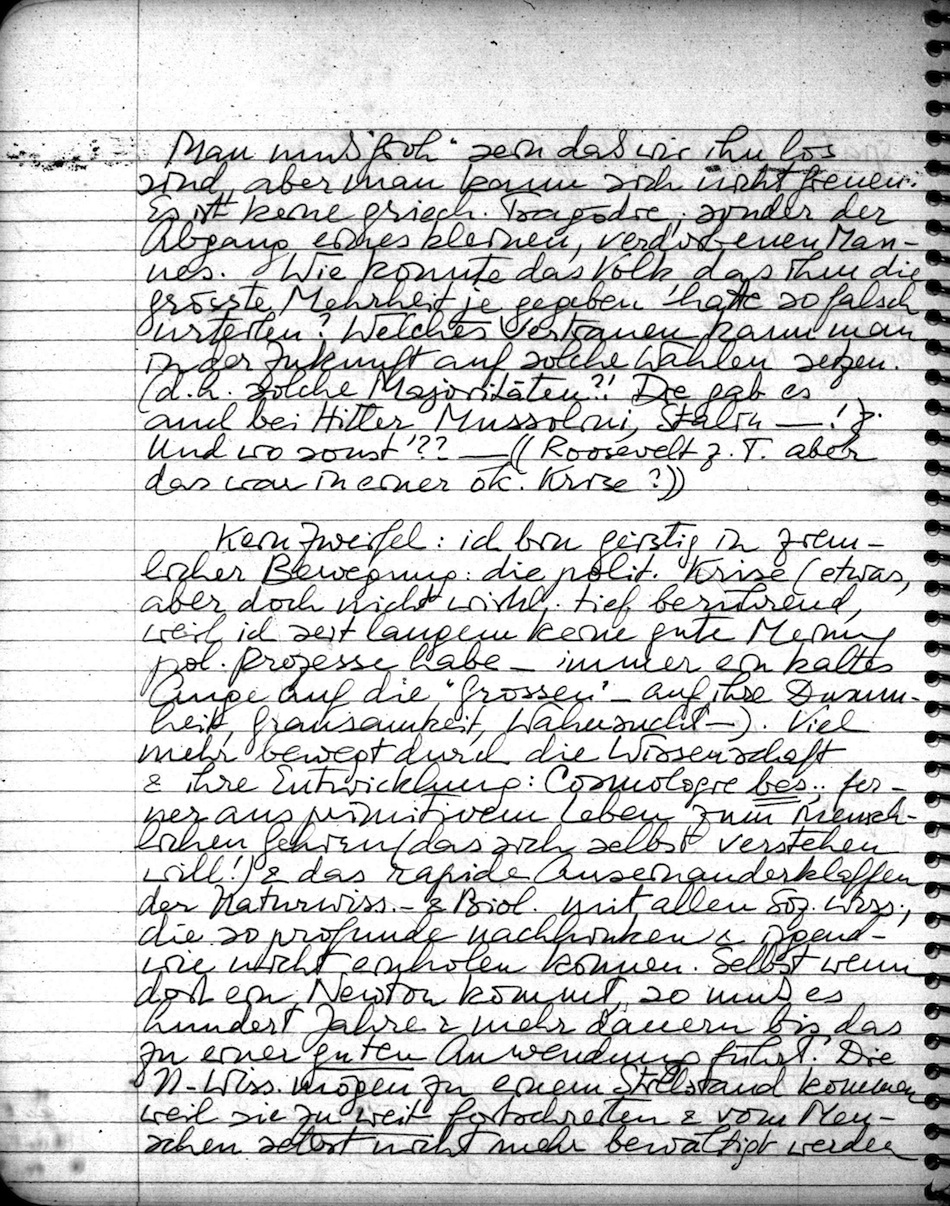 Man muß "froh" sein daß wir ihn los
sind, aber man kann sich nicht freuen.
Es ist keine griech. Tragödie, sonder der
Abgang eines kleinen, verdorbenen Man-
nes. Wie konnte das Volk das ihm die
grösste Mehrheit je gegeben hatte so falsch
urteilen? Welches Vertrauen kann man
in der Zukunft auf solche Wahlen setzen.
(d.h. solche Majoritäten?! Die gab es
auch bei Hitler Mussolini, Stalin —!).
Und wo sonst?? — ((Roosevelt z. T. aber
das war in einer ök. Krise?))
Kein Zweifel: ich bin geistig in ziem-
licher Bewegung: die polit. Krise (etwas,
aber doch nicht wirkl. tief berührend,
weil ich seit langem keine gute Meinung
pol. Prozesse habe – immer ein kaltes
Auge auf die "Grossen" – auf ihre Dumm-
heit, Grausamkeit, –). Viel
mehr bewegt durch die Wissenschaft
& ihre Entwicklung: Cosmologie bes.; fer-
ner aus primitivem Leben zum mensch-
lichen Gehirn (das sich selbst verstehen
will!) & das rapide Auseinanderklaffen
der Naturwiss.- & Biol. mit allen Soz. wiss.,
die so profunde nachhinken & irgend-
wie nicht einholen können. Selbst wenn
dort ein Newton kommt, so muß es
hundert Jahre & mehr dauern bis das
zu einer guten Anwendung führt. Die
N-Wiss. mögen zu einem Stillstand kommen
weil sie zu weit fortschreiten & vom Men-
schen selbst nicht mehr bewältigt werden